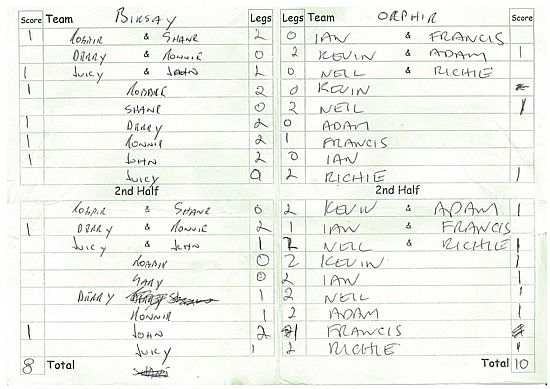 Score Team BIRSAY Legs Legs Team ORPHIR Score
1 ROBBIE & SHANE 2 0 IAN & FRANCIS
DERRY & RONNIE 0 2 KEVIN & ADAM 1
1 JUICY & JOHN 2 0 NEIL & RICHIE
1 ROBBIE 2 0 KEVIN
SHANE 0 2 NEIL 1
1 DERRY 2 0 ADAM
1 RONNIE 2 1 FRANCIS
1 JOHN 2 0 IAN
JUICY 0 2 RICHIE 1
2nd Half 2nd Half
ROBBIE & SHANE 0 2 KEVIN & ADAM 1
1 DERRY & RONNIE 2 1 IAN & FRANCIS
JUICY & JOHN 1 2 NEIL & RICHIE 1
ROBBIE 0 2 KEVIN 1
GARY 0 2 IAN 1
DERRY 1 2 NEIL 1
RONNIE 1 2 ADAM 1
1 JOHN 2 1 FRANCIS
JUICY 1 2 RICHIE 1
8 Total Total 10